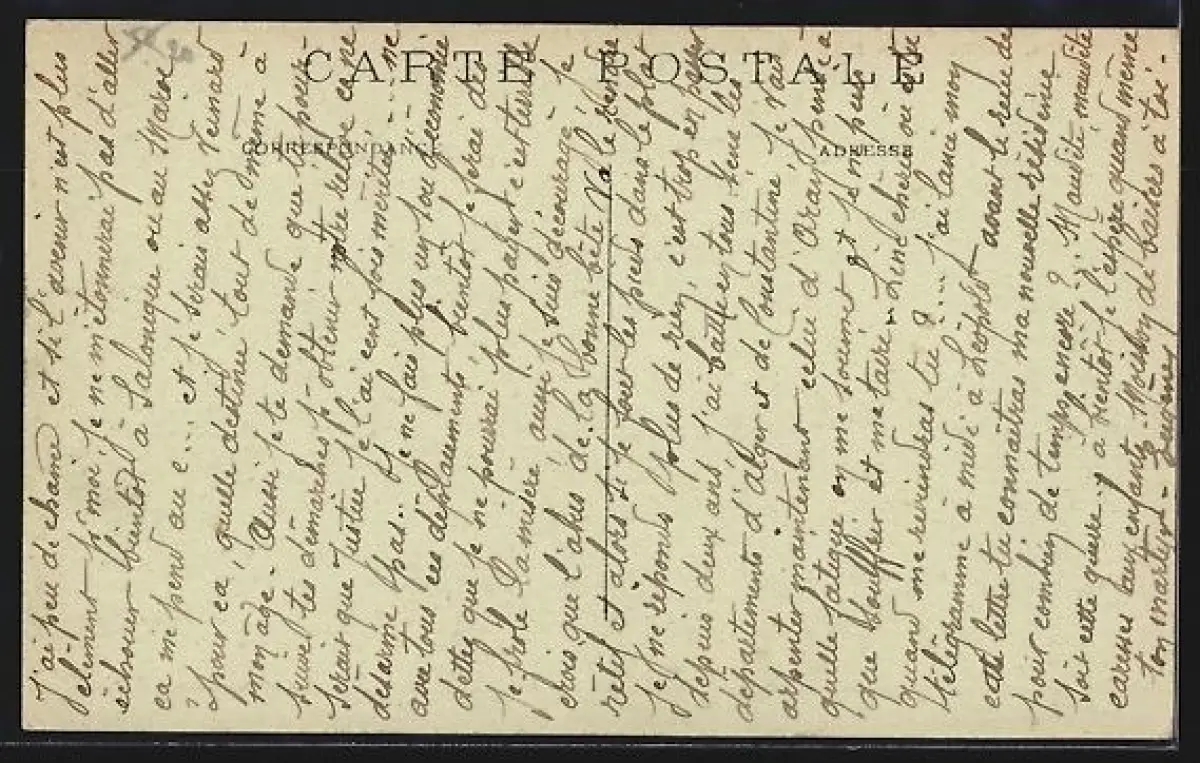 CARTE POSTALE
CORRESPONDANCE
ADRESSE
J'ai peu de chance et si l'avenir n'est plus
clément pr moi, je ne m'étonnerai pas d'aller
échouer bientôt à Salonique ou au Maroc
ça me pend au c... et je serais assez veinard
pour ça, quelle destinée tout de même à
mon âge. Aussi je te demande que tu pour-
suive tes démarches pr obtenir notre relève ce ne
serait que justice je l'ai cent fois méritée ... ne
désarme pas.. Je ne fais plus un sou d'économie
avec tous ces déplacements bientôt je ferai des
dettes que je ne pourrai plus payer c'est urelle
je frôle la misère aussi je suis découragé, je
crois que l'abus de la bonne bête va le rendre
rétif et alors si je fous les pieds dans le plat
je ne réponds plus de rien, c'est trop en peu
depuis deux ans j'ai battu en tous sens les
départements d'Alger et de Constantine je vais
arpenter maintenant celui d'Oran, pense à
quelle fatigue on me soumet et je ne puis
que souffrir et me taire. Liné chérie où es tu
quand me reviendras tu ?.... j'ai lancé mon
télégramme à midi à Léopold avant le reçu de
cette lettre tu connaitras ma nouvelle résidence
pour combien de temps encore ? Maudite maudite
soit cette guerre. A bientôt je l'espère quand même
caresses aux enfants. Moisson de baisers à toi -
ton martyr -